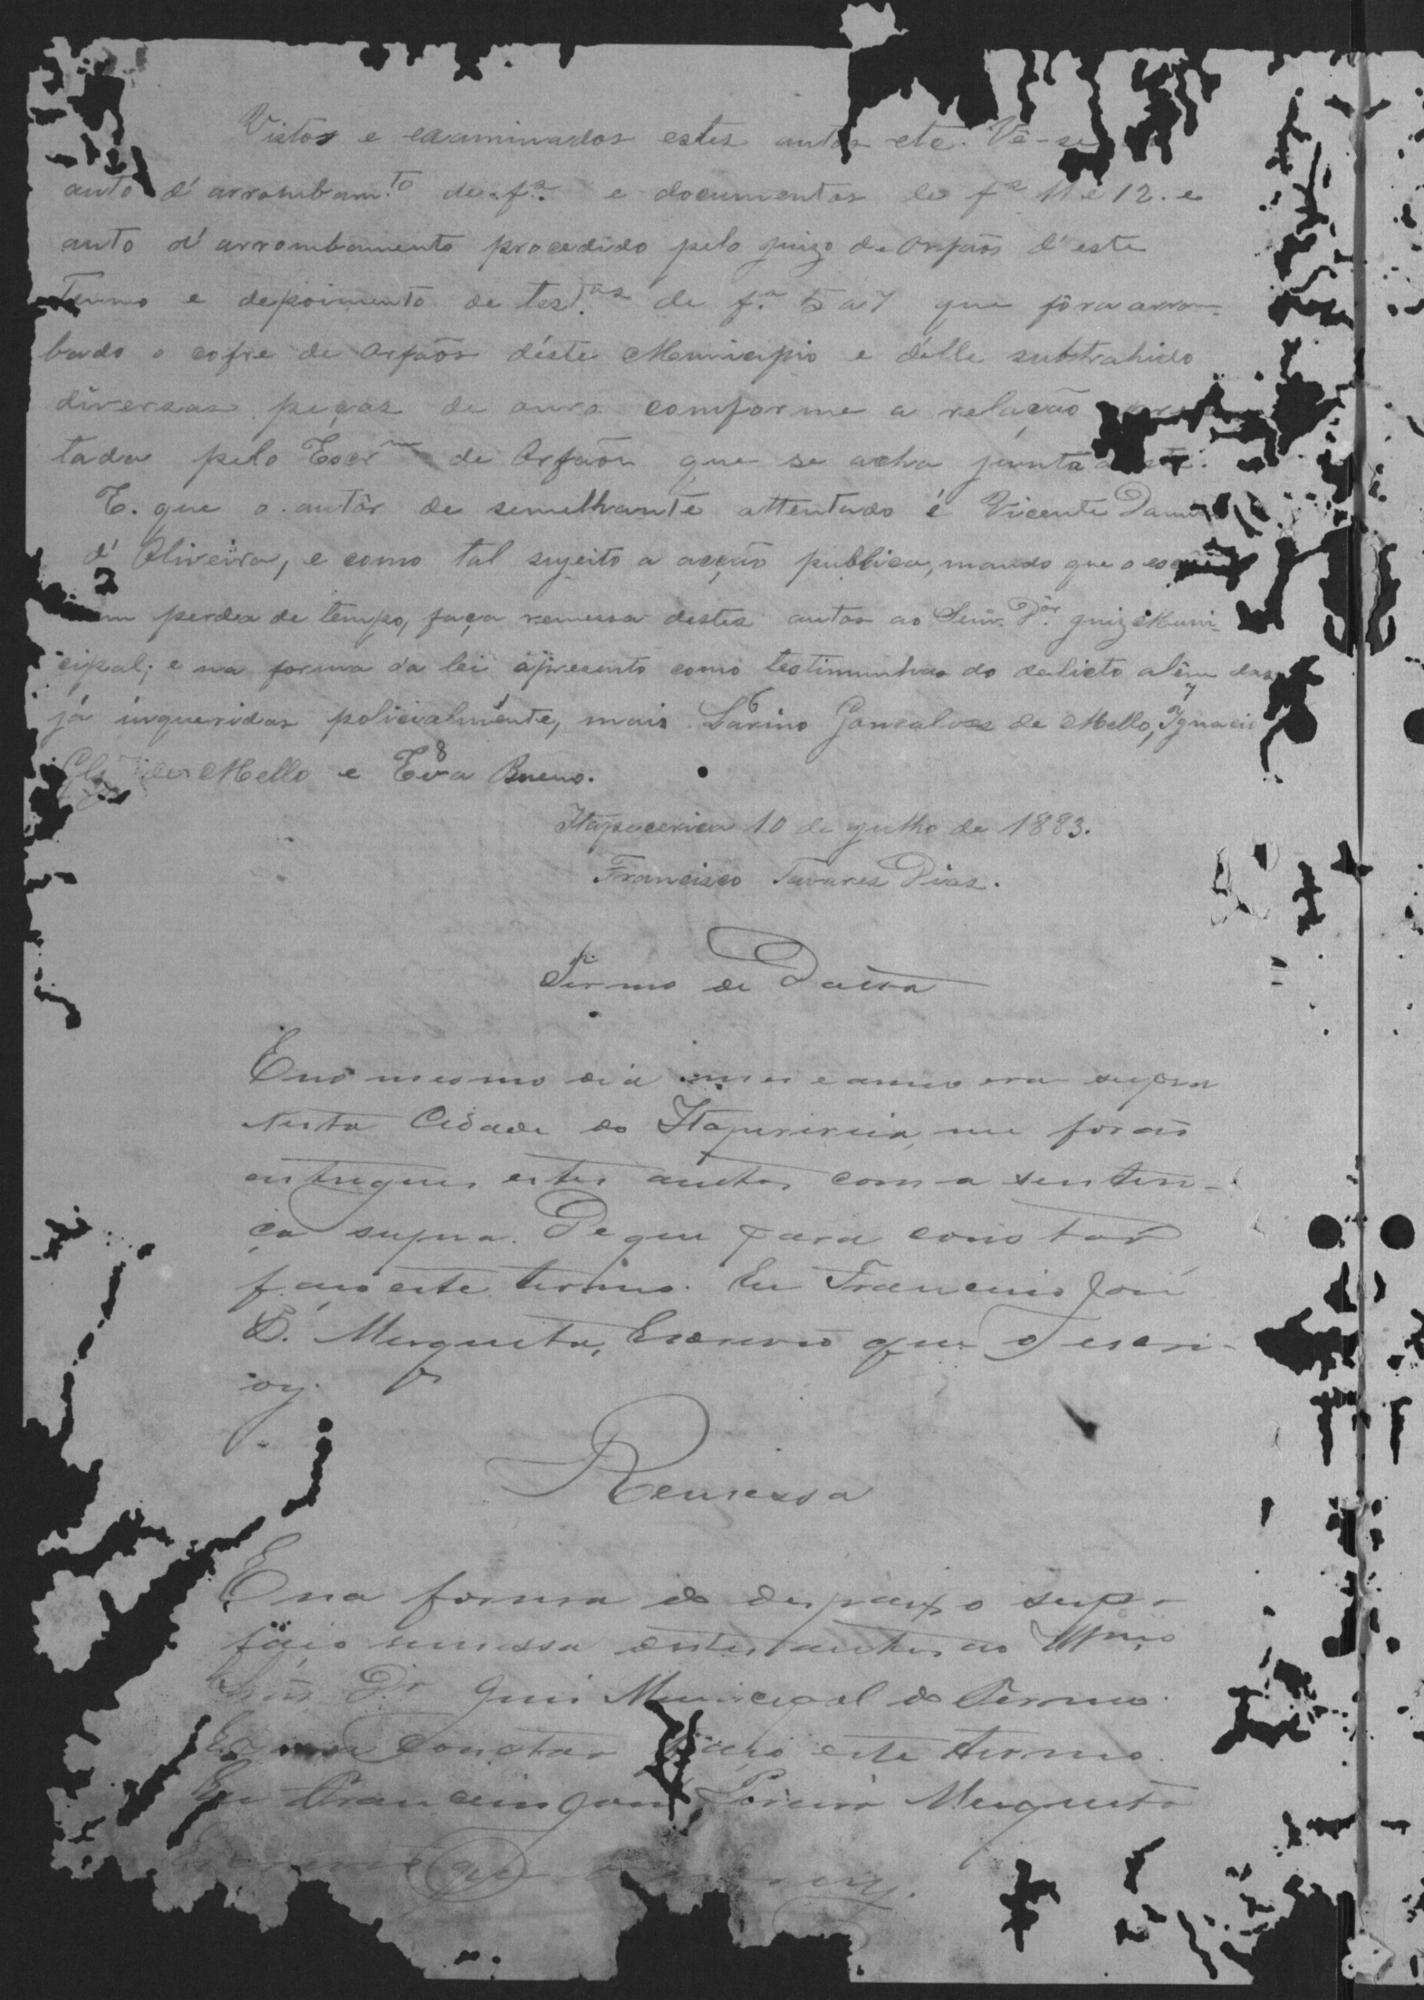 Vistos e examinados estes autos etc. Vê-se
auto d'arrombam.to de f.s e documentos de f.s 11 e 12. e
auto d'arrombamento procedido pelo juizo de Orfãos d'este
Termo e depoimento de test.as de f.s 5 a 7 que fôra arrom-
bado o cofre de Orfãos déste Municipio e délle subtrahido
diversas peças de ouro comforme a relação
tada pelo Escr.m de Orfãos que se acha junta
E. que o autôr de semelhante attentado é Vicente
d'Oliveira, e como tal sujeito a acção publica, mando que o
perda de tempo, faça remessa destes autos ao Senr. D.or Juiz Muni-
cipal; e na forma da lei apresento como testimunhas do delicto além das
já inqueridas policialmente, mais 6 Larino Gonçalves de Mello, 7 Ignacio
Mello e 8 Eva Bueno.
Itapecerica 10 de julho de 1883.
Francisco Tavares Dias.
Termo de Datta
E no mesmo dia mes e anno era supra
nesta Cidade de Itapecerica, me forão
entregues estes autos com a senten-
ça supra. De que para constar
faço este termo. Eu Francisco José
P. Mesquita, Escrivão que o escri-
vy.
Remessa
E na forma do despaixo supr
faço remessa estes autos ao Illmo
Snr. D.r Juis Municipal do Termo.
constar faço este termo.
Eu Francisco José Pereira Mesquita
que